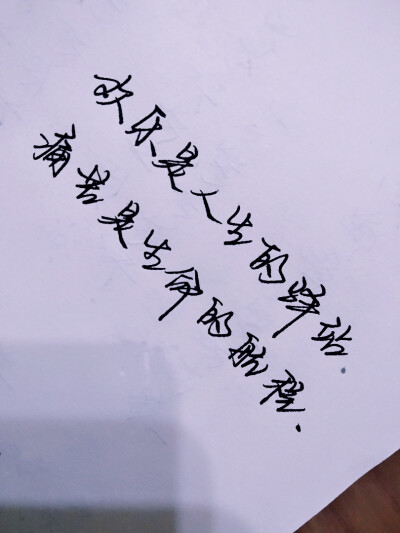 欢乐是人生的驿站
痛苦是生命的航程.